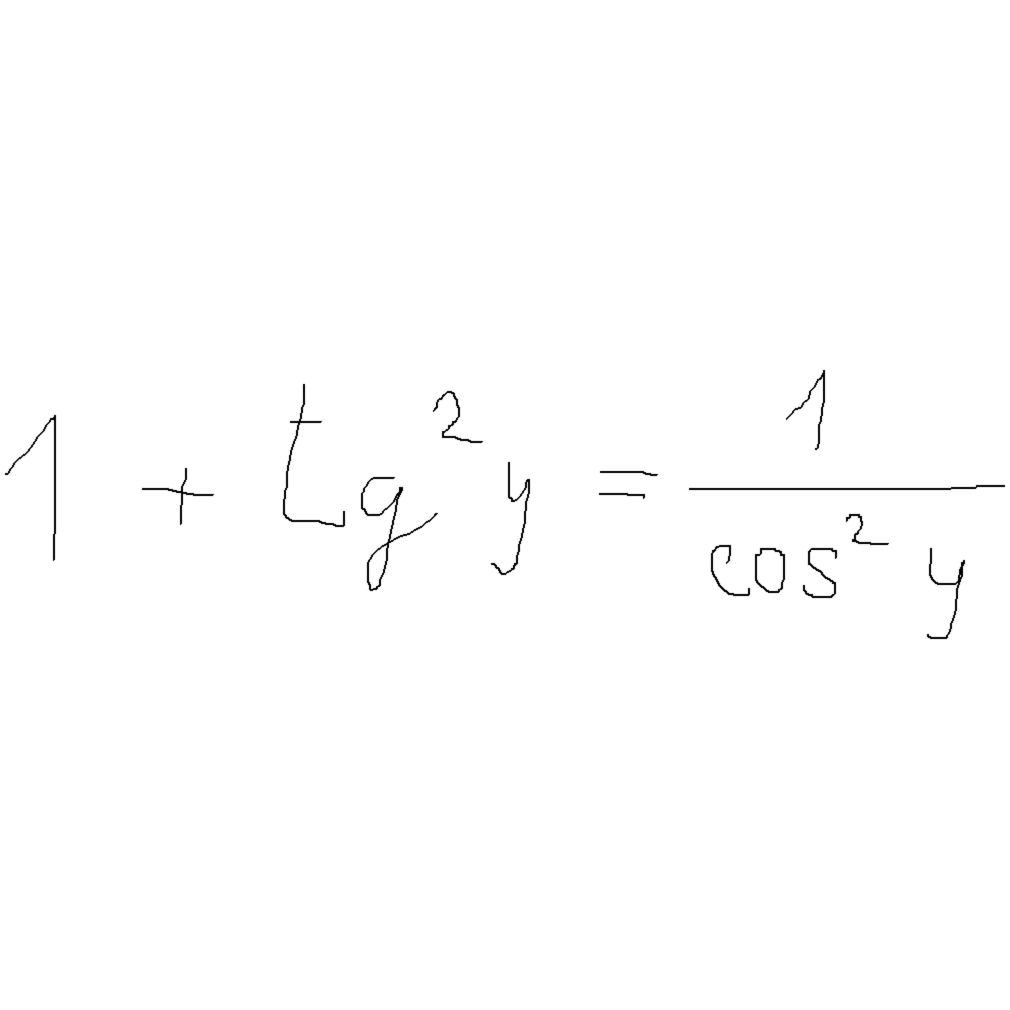 1 + tg² y = 1 / cos² y